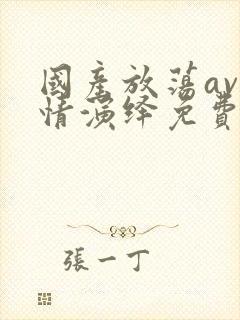 國產放蕩av
情演绎免費
張一丁